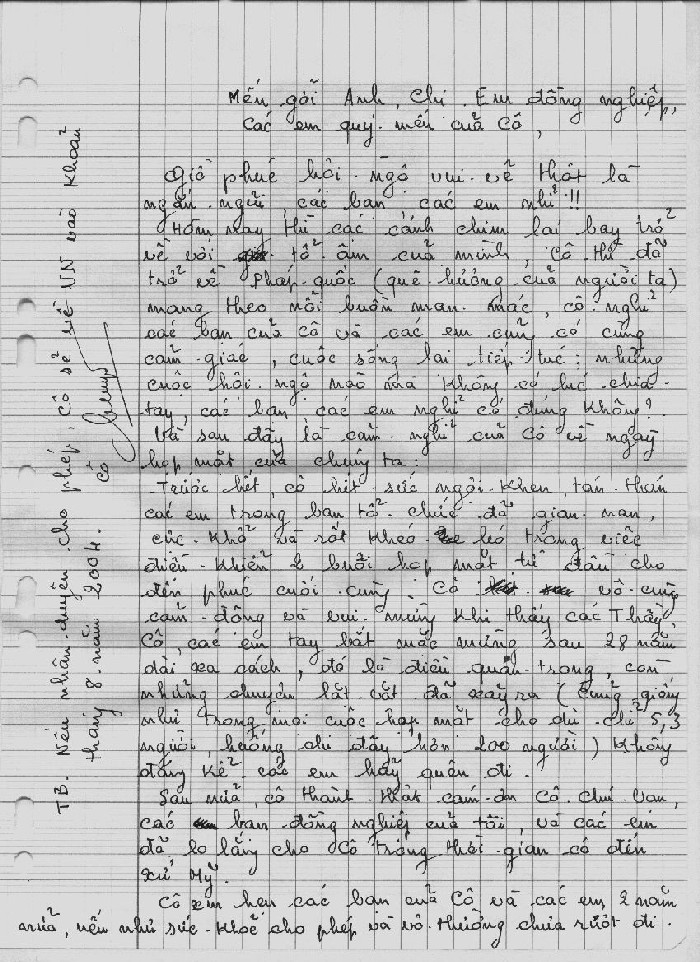 Mến gởi Anh, Chị, Em đồng nghiệp,
Các em quý mến của Cô,
Giờ phút hội-ngộ vui vẽ thật là
ngắn ngũi, các bạn các em nhỉ!!
Hôm nay thì các cánh chim lại bay trở
về với tổ ấm của mình, Cô thì đã
trở về Pháp quốc (quê hương của người ta)
mang theo nỗi buồn man mác, cô nghĩ
các bạn của cô và các em cũng có cùng
cảm-giác, cuộc sống lại tiếp-tục: những
cuộc hội-ngộ nào mà không có lúc chia-
tay, các bạn các em nghĩ có đúng không?
Và sau đây là cảm nghĩ của Cô về ngày
họp mặt của chúng ta:
Trước hết, cô hết sức ngợi-khen, tán thán
các em trong ban tổ-chức đã gian-nan,
cực-khổ và rất khéo-léo trong việc
điều-khiển 2 buổi họp mặt từ đầu cho
đến phút cuối cùng. Cô vô-cùng
cảm-động và vui-mừng khi thấy các Thầy,
Cô, các em tay bắt mặc mừng sau 28 năm
dài xa cách, đó là điều quan-trọng, còn
những chuyện lặt vặt đã xảy ra (cũng giống
như trong mọi cuộc họp mặt cho dù chỉ 5,3
người, huống chi đây hơn 200 người) không
đáng kể các em hãy quên đi.
Sau nữa, cô thành-thật cám-ơn Cô Chú Van,
các bạn đồng nghiệp của tôi, và các em
đã lo lắng cho Cô trong thời-gian cô đến
xứ Mỹ.
Cô xin hẹn các bạn của Cô và các em 2 năm
nữa, nếu như sức-khỏe cho phép và vô-thường chưa rướt đi.
TB. Nếu nhân-duyên cho phép, cô sẽ về VN vào khoản
tháng 8 năm 2004.
Cô